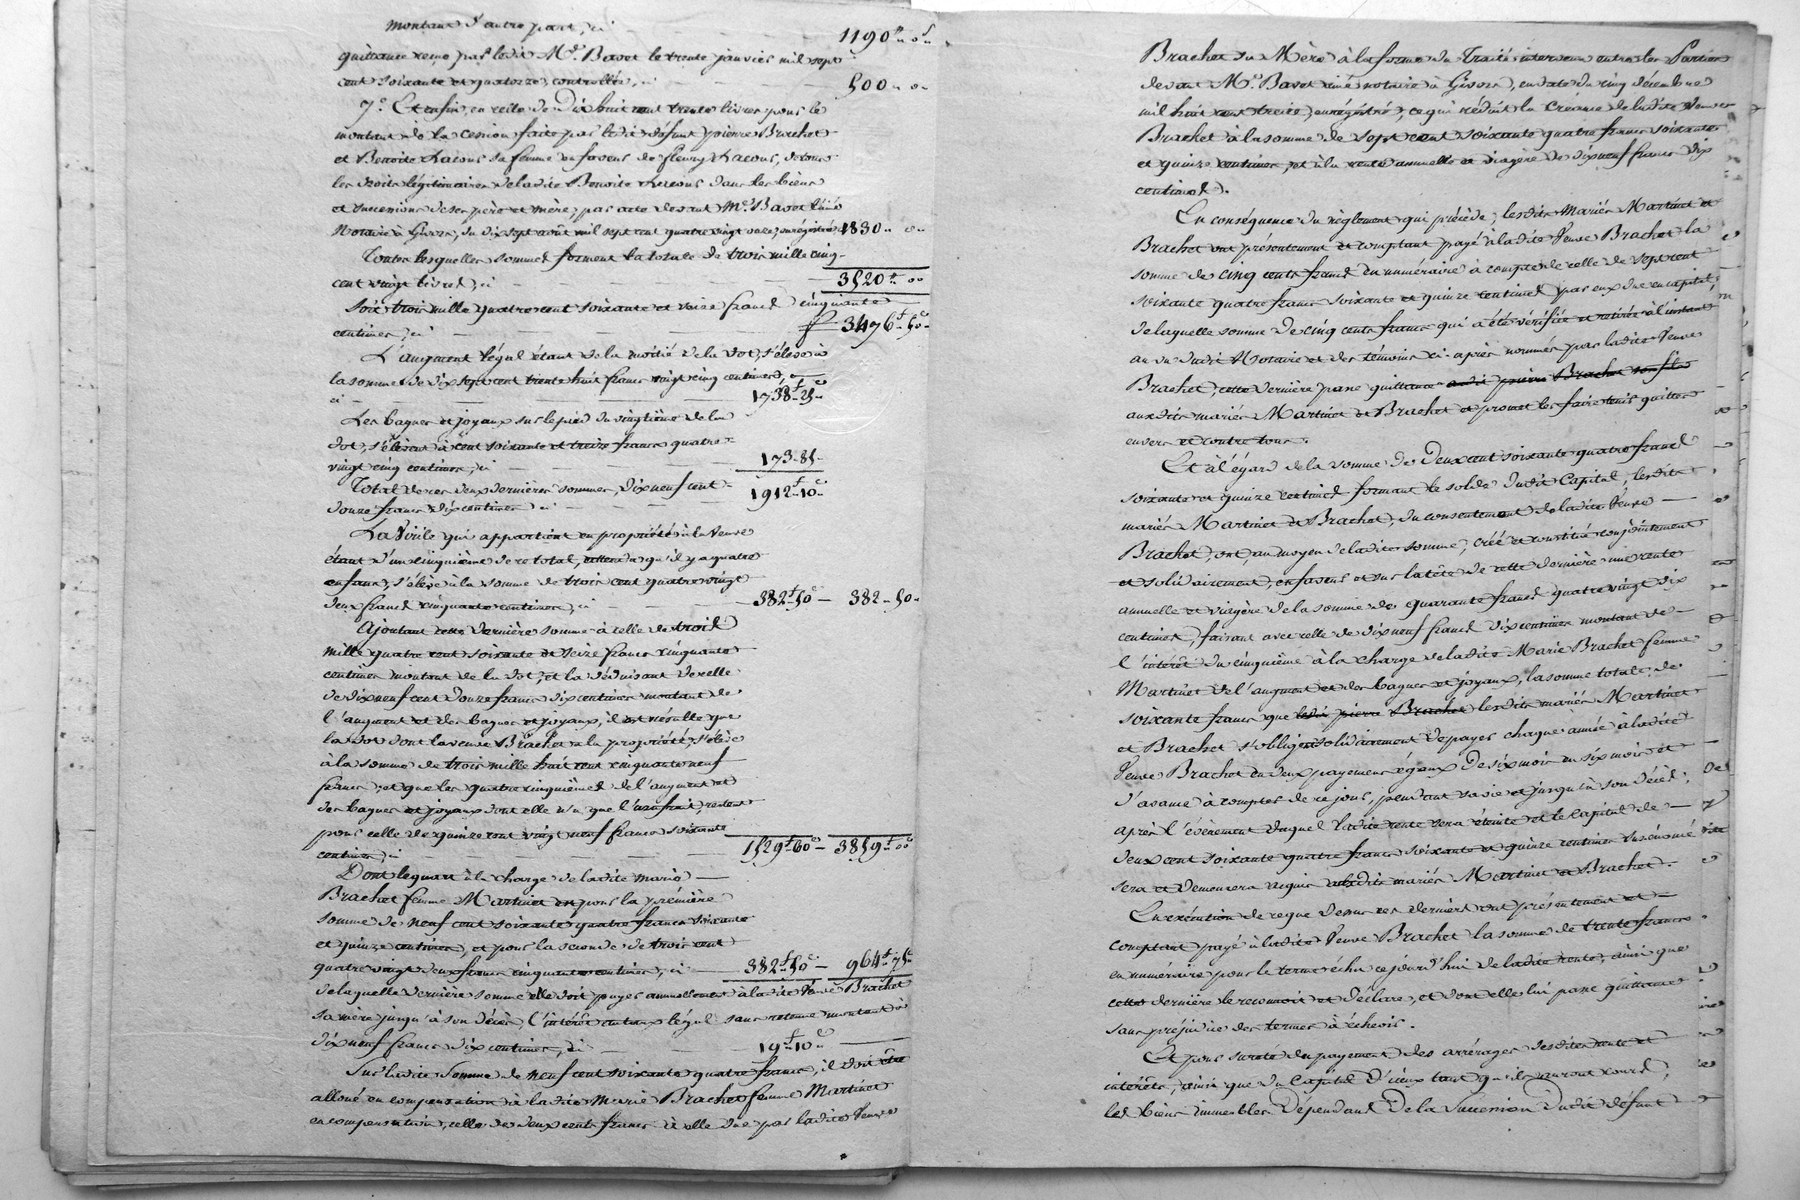 montant d'autre part, ci 1190.. 0..
quittance reçue par ledit Me. Bavot le trente janvier mil sept
cent soixante et quatorze, controllée, ci 500.. 0..
7.° Et enfin, en celle de Dix huit cent trente livres pour le
montant de la cession faite par ledit défunt pierre Brachet
et Benoite Lacous sa femme en faveur de fleury Lacous, de tous
les droits légitimaires de ladite Benoite Lacous dans les biens
et successions de ses père et mère, par acte devant Me. Bavot l'ainé
Notaire à Givors, du dix sept août mil sept cent quatre vingt onze, enrégistré 1830.. 0..
Toutes lesquelles sommes forment la totale de trois mille cinq
cent vingt livres, ci 3520.tt 00
Soit trois mille quatre cent soixante et seize francs cinquante
centimes, ci 3476f..50c
L'augment légal étant de la moitié de la dot, s'élève à
la somme de dix sept cent trente huit francs vingt cinq centimes,
ci 1738f..25c
Les bagues et joyaux sur le pied du vingtième de la
dot, s'élèvent à cent soixante et treize francs quatre
vingt cinq centimes, ci 173..85
Total de ces deux dernières sommes, dix neuf cent
douze francs dix centimes, ci 1912f..10c
La Virile qui appartient en propriété à la Veuve
étant d'un cinquième de ce total, attendu qu'il y a quatre
enfans, s'élève à la somme de trois cent quatre vingt
deux francs cinquante centimes, ci 382f..50c — 382..50
Ajoutant cette dernière somme à celle de trois
mille quatre cent soixante et seize francs cinquante
centimes montant de la dot, et la déduisant de celle
de dix neuf cent douze francs dix centimes montant de
l'augment et des bagues et joyaux, il en résulte que
la dot dont la veuve Brachet a la propriété, s'élève
à la somme de trois mille huit cent cinquante neuf
francs, et que les quatre cinquièmes de l'augment et
des bagues et joyaux dont elle n'a que l'usufruit, restent
pour celle de quinze cent vingt neuf francs soixante
centimes, ci 1529f..60c — 3859f..00c
Dont le quart à la charge de ladite marie
Brachet femme Martinet est pour la première
somme de neuf cent soixante quatre francs soixante
et quinze centimes, et pour la seconde de trois cent
quatre vingt deux francs cinquante centimes, ci 382f..50c — 964f..75c
de laquelle dernière somme elle doit payer annuellement à ladite Veuve Brachet
sa mère jusqu'à son décès, l'intérêt au taux légal sans retenue montant à
dix neuf francs dix centimes, ci 19f..10c
Sur ladite somme de neuf cent soixante quatre francs, il doit être
alloué en compensation à ladite Marie Brachet femme Martinet
en compensation, celle de deux cents francs à elle due par ladite Veuve
Brachet sa Mère à la forme du Traité intervenu entre les Parties
devant Me. Bavot ainé notaire à Givors, en date du cinq décembre
mil huit cent treize, enrégistré, ce qui réduit la Créance de ladite Veuve
Brachet à la somme de sept cent soixante quatre francs soixante
et quinze centimes, et à la rente annuelle et viagère de dix neuf francs dix
centimes.
En conséquence du règlement qui précède, lesdits Mariés Martinet et
Brachet ont présentement et comptant payé à ladite Veuve Brachet la
somme de cinq cents francs en numéraire à compte de celle de sept cent
soixante quatre francs soixante et quinze centimes par eux due en capital,
de laquelle somme de cinq cents francs qui a été vérifiée et retirée à l'instant
au vu dudit Notaire et des témoins ci-après nommés par ladite Veuve
Brachet, cette dernière passe quittance audit pierre Brachet son fils
auxdits mariés Martinet et Brachet et promet les faire tenir quittes
envers et contre tous.
Et à l'égard de la somme de Deux cent soixante quatre francs
soixante et quinze centimes formant le solde dudit Capital, lesdits
mariés Martinet et Brachet, du consentement de ladite Veuve
Brachet, ont, au moyen de ladite somme, créé et constitué conjointement
et solidairement, en faveur et sur la tête de cette dernière une rente
annuelle et viagère de la somme de quarante francs quatre vingt dix
centimes, faisant avec celle de dix neuf francs dix centimes montant de
l'intérêt du cinquième à la charge de ladite Marie Brachet femme
Martinet de l'augment et des bagues et joyaux, la somme totale de
soixante francs que ledit pierre Brachet lesdits mariés Martinet
et Brachet s'obligent solidairement de payer chaque année à ladite
Veuve Brachet en deux payemens égaux de six mois en six mois et
d'avance à compter de ce jour, pendant sa vie et jusqu'à son décès;
après l'évènement duquel ladite rente sera éteinte et le Capital de
deux cent soixante quatre francs soixante et quinze centimes susénoncé
sera et demeurera acquis auxdits mariés Martinet et Brachet.
En exécution de ce que dessus ces derniers ont présentement et
comptant payé à ladite Veuve Brachet la somme de trente francs
en numéraire pour le terme échu ce jourd'hui de ladite rente, ainsi que
cette dernière le reconnoit et déclare, et dont elle lui passe quittance
sans préjudice des termes à échoir.
Et pour sureté du payement des arrérages desdites rente et
intérêts, ainsi que du Capital d'iceux tant qu'ils auront cours,
les biens immeubles dépendant de la Succession dudit défunt